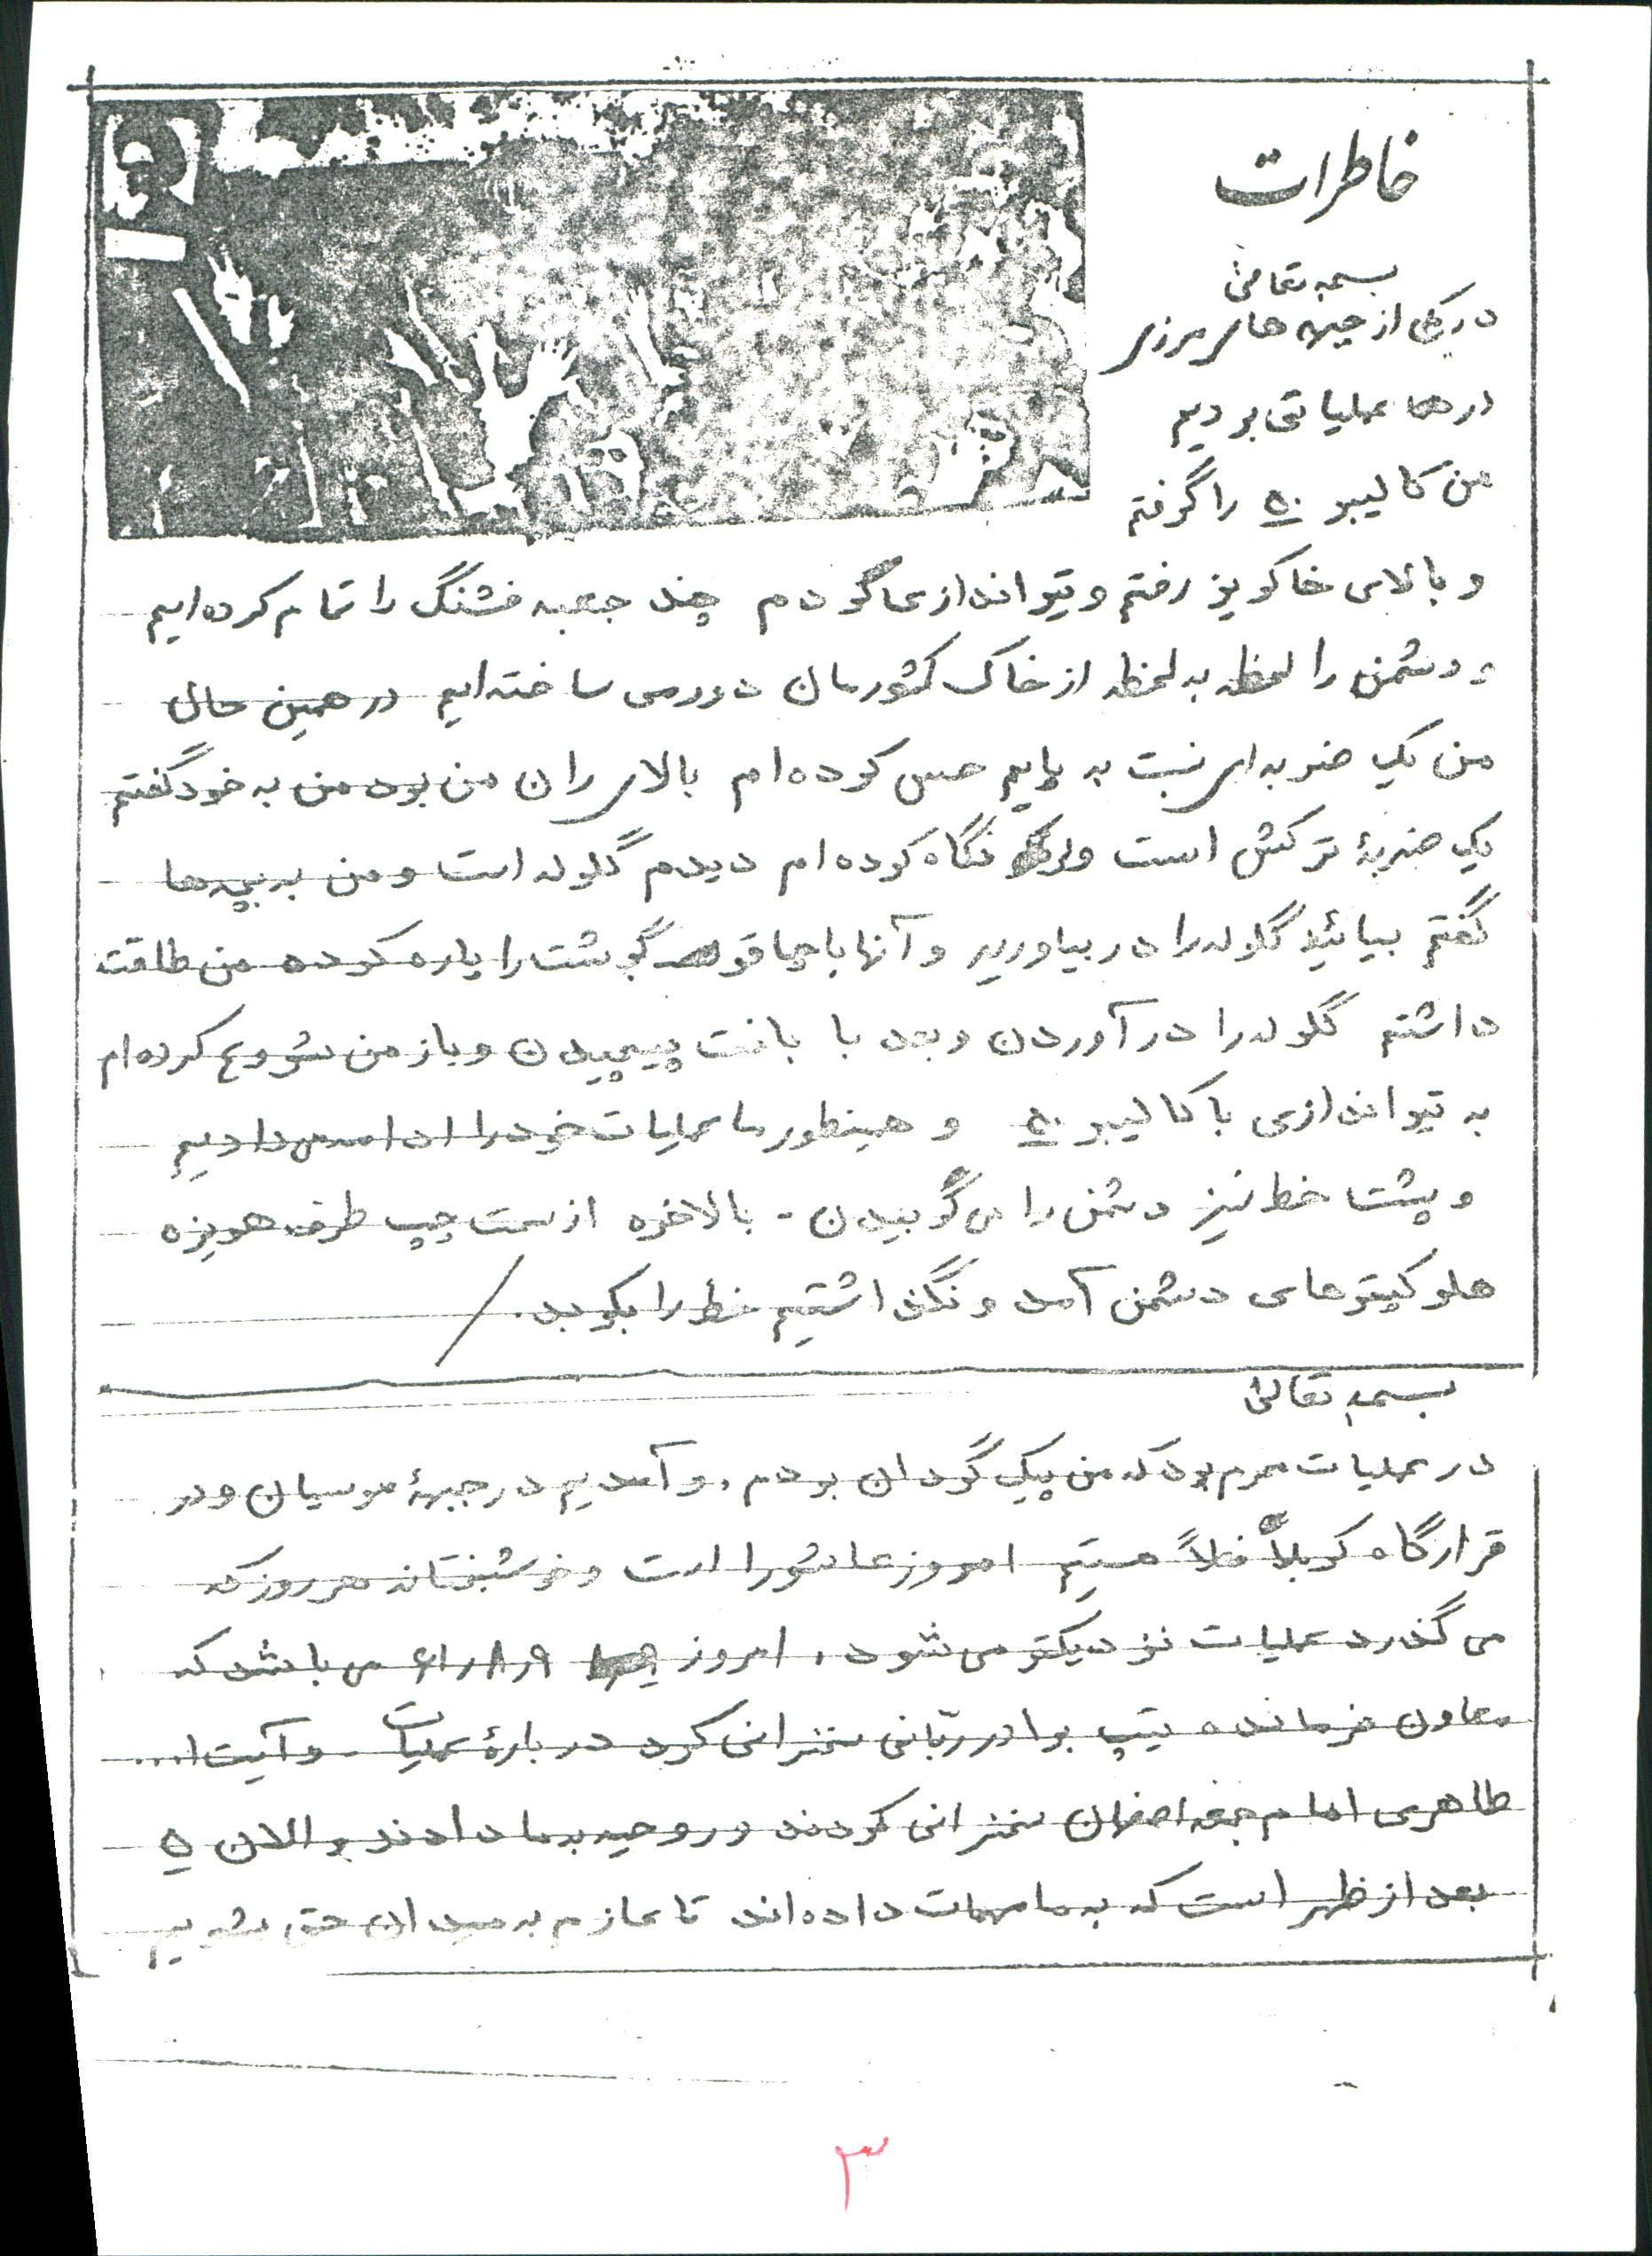 خاطرات
بسمه تعالی
در یکی از جبهه های مرزی
در عملیاتی بودیم
من کالیبر ۵۰ را گرفتم
و بالای خاکریز رفتم و تیراندازی کردم چند جعبه فشنگ را تمام کرده ایم
و دشمن را لحظه به لحظه از خاک کشورمان دور می ساخته ایم در همین حال
من یک ضربه ای نسبت به پایم حس کرده ام بالای ران من بود من به خود گفتم
یک ضربهٔ ترکش است نگاه کرده ام دیدم گلوله است و من به بچه ها
گفتم بیائید گلوله را در بیاورید و آنها با چاقو گوشت را پاره کرده من طاقت
داشتم گلوله را در آوردن و بعد با بانت پیچیدن و باز من شروع کرده ام
به تیراندازی با کالیبر ۵۰ و همینطور ما عملیات خود را ادامه می دادیم
و پشت خط نیز دشمن را می گوبیدن - بالاخره از سمت چپ طرف هویزه
هلوکیترهای دشمن آمد و نگذاشتیم خط را بکوبد . /
بسمه تعالی
در عملیات محرم بود که من پیک گردان بودم . و آمدیم در جبههٔ موسیان و در
قرارگاه کربلا فعلاً هستیم امروز عاشورا است و خوشبختانه هر روز که
می گذرد عملیات نزدیکتر می شود . امروز ۶۱/۸/۹ می باشد که
معاون فرمانده تیپ برادر ربّانی سخنرانی کرد دربارهٔ عملیات و آیت ا...
طاهری امام جمعه اصفهان سخنرانی کردند و روحیه به ما دادند و الان ۵
بعد از ظهر است که به ما مهمات داده اند تا عازم به میدان حق بشویم
۳